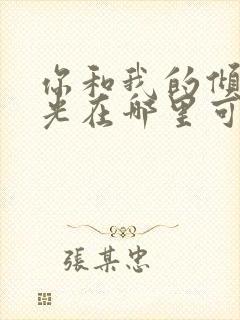 你和我的倾
光在哪里可
張某忠